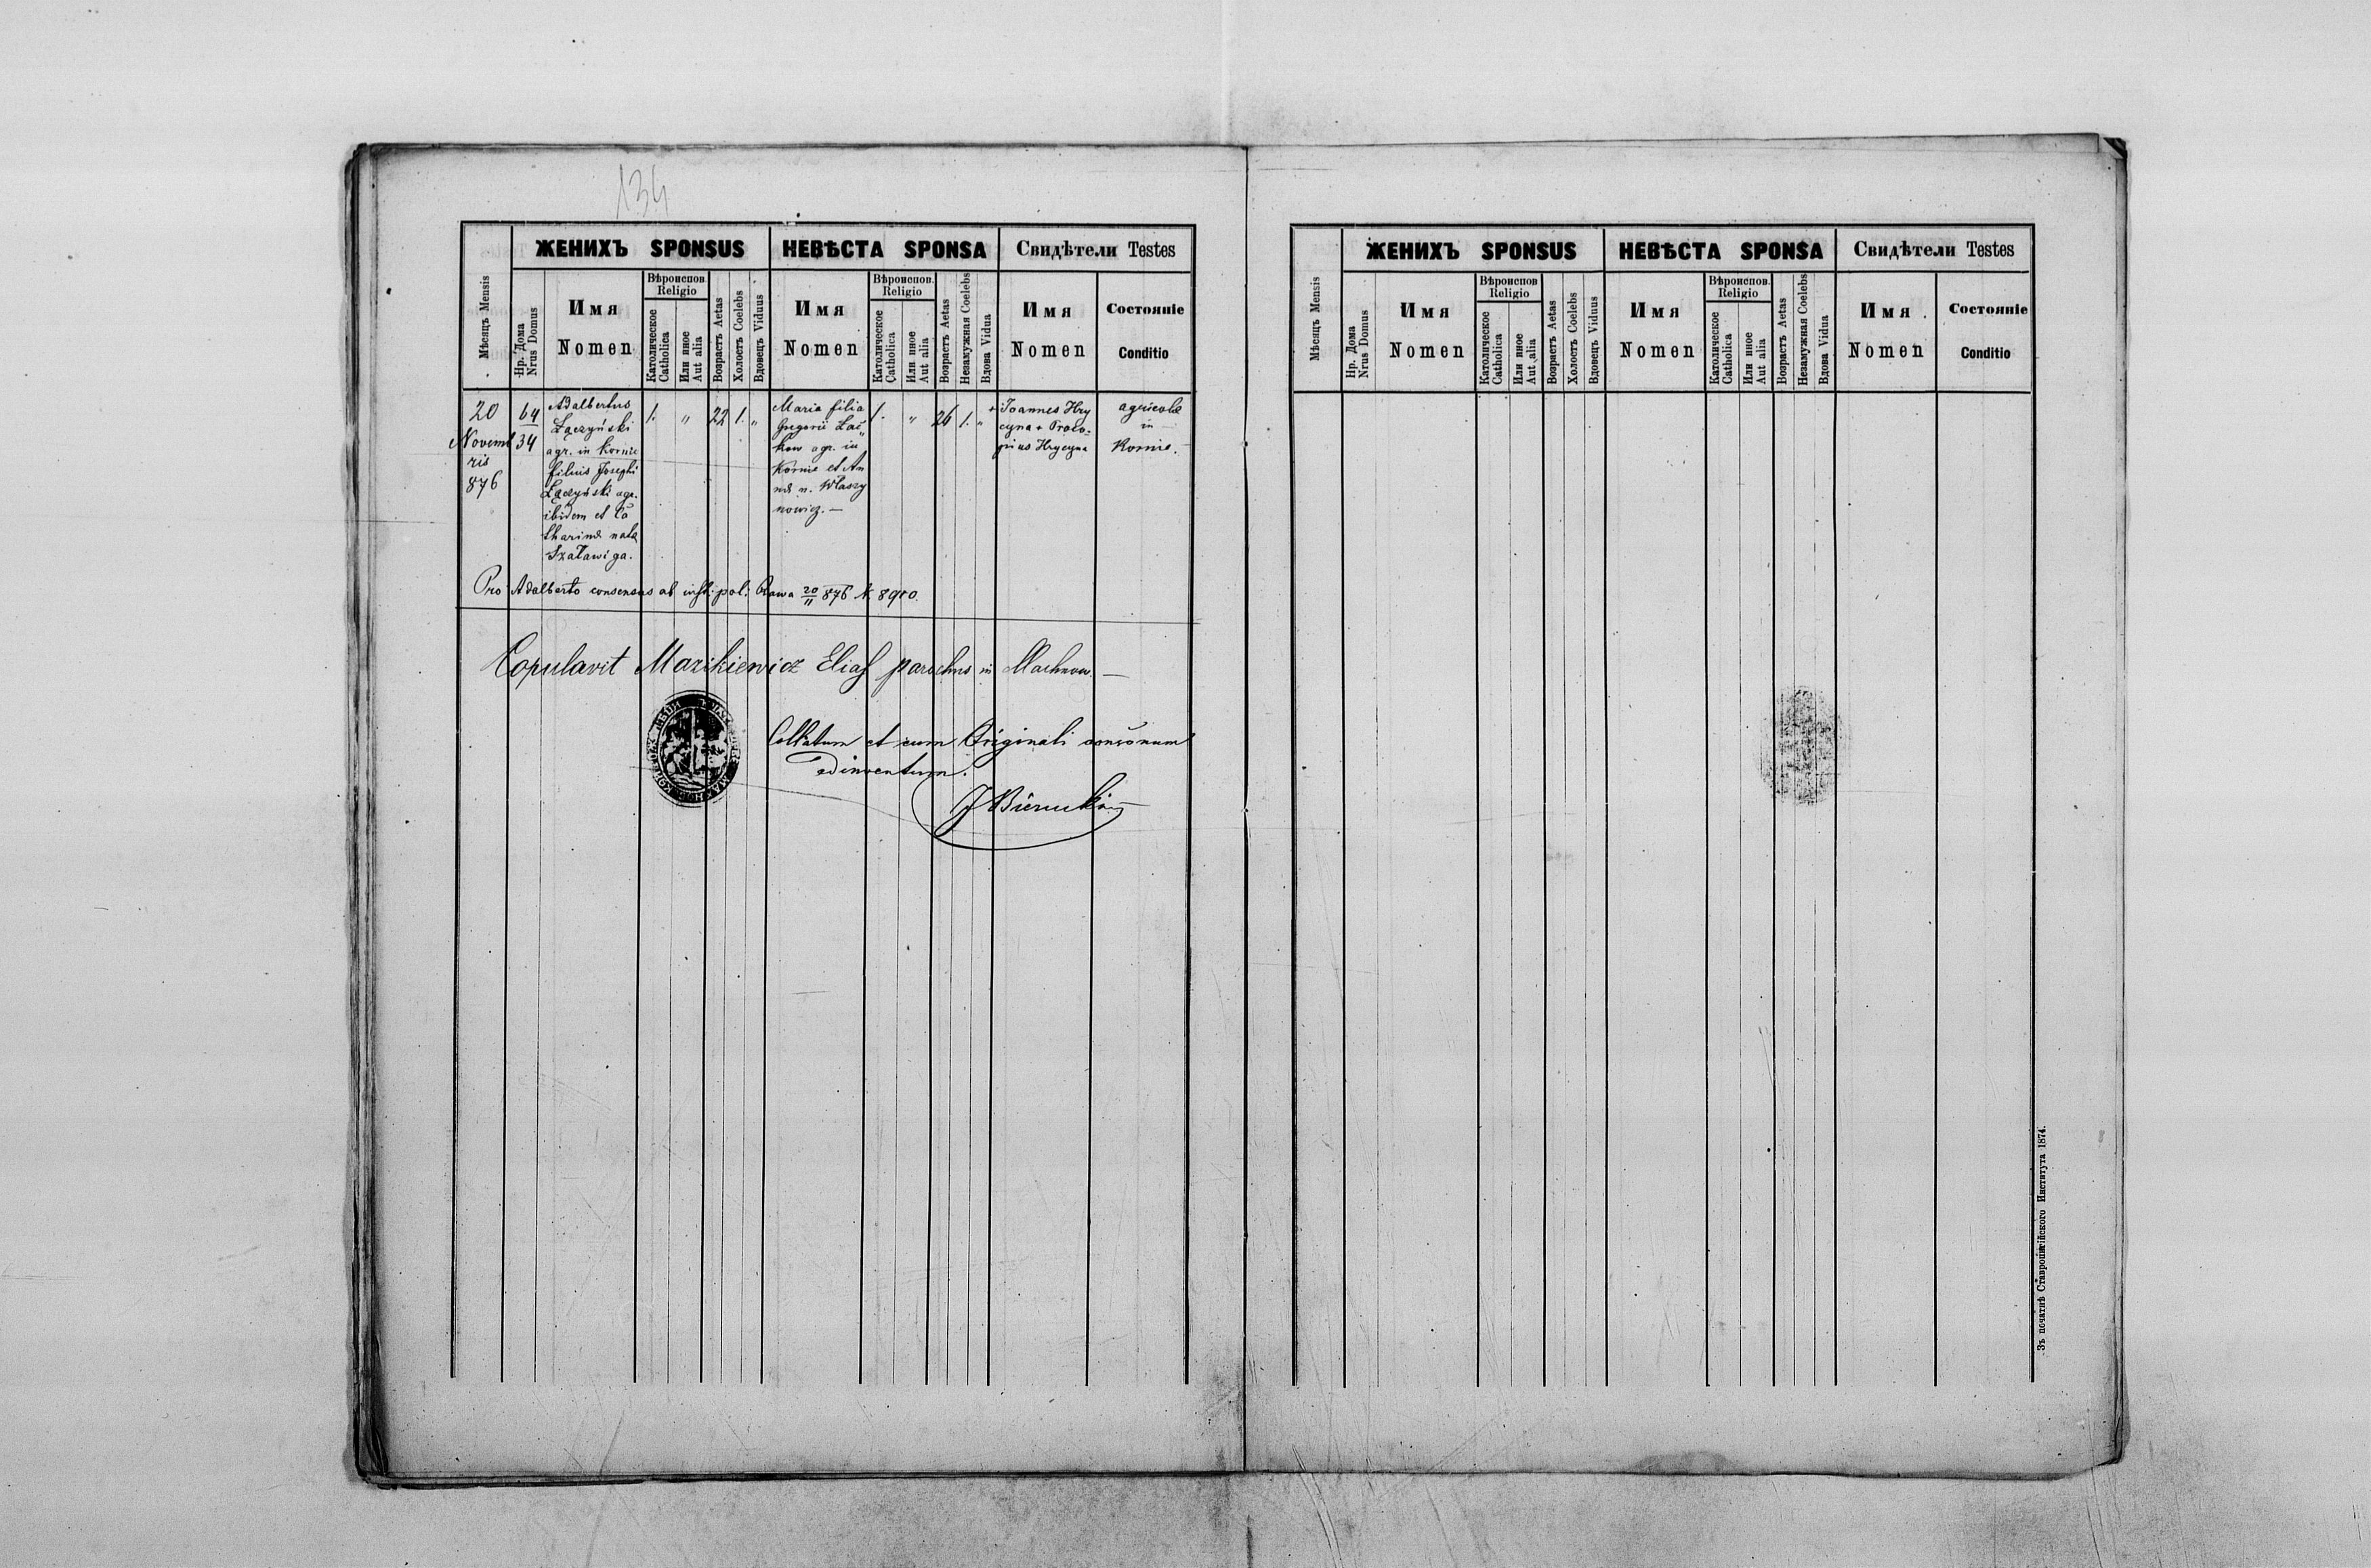 134
ЖЕНИХЪ SPONSUS
НЕВѢСТА SPONSA
Свидѣтели Testes
Мѣсяцъ Mensis
Нр. Дома
Nrus Domus
Имя
Nomen
Вѣроиспов.
Religio
Католическое
Catholica
Или иное
Aut alia
Возрастъ Aetas
Холостъ Coelebs
Вдовецъ Viduus
Имя
Nomen
Вѣроиспов.
Religio
Католическое
Catholica
Или иное
Aut alia
Возрастъ Aetas
Незамужная Coelebs
Вдова Vidua
Имя
Nomen
Состояніе
Conditio
20
Novemb
ris
876
64
34
Adalbertus
Łączyński
agr. in Kornie
filius Josephi
Łączyński agr.
ibidem et Ca
tharinæ natæ
Szaławiga.
1.
"
22
1.
"
Maria filia
Gregorii Łać
kow agr. in
Kornie et An
næ n. Właszy
nowicz. —
1.
"
26
1.
"
+ Joannes Hry
cyna + Proco-
pius Hrycyna
agricolæ
in
Kornie.
Pro Adalberto consensus ab inst. pol. Rawa 20/11 876 N. 8900.
Copulavit Marikiewicz Elias parochus in Machnow. —
Collatum et cum Originali consonum
adinventum.
ЖЕНИХЪ SPONSUS
НЕВѢСТА SPONSA
Свидѣтели Testes
Мѣсяцъ Mensis
Нр. Дома
Nrus Domus
Имя
Nomen
Вѣроиспов.
Religio
Католическое
Catholica
Или иное
Aut alia
Возрастъ Aetas
Холостъ Coelebs
Вдовецъ Viduus
Имя
Nomen
Вѣроиспов.
Religio
Католическое
Catholica
Или иное
Aut alia
Возрастъ Aetas
Незамужная Coelebs
Вдова Vidua
Имя
Nomen
Состояніе
Conditio
Зъ печатнѣ Ставропигійского Института 1874.